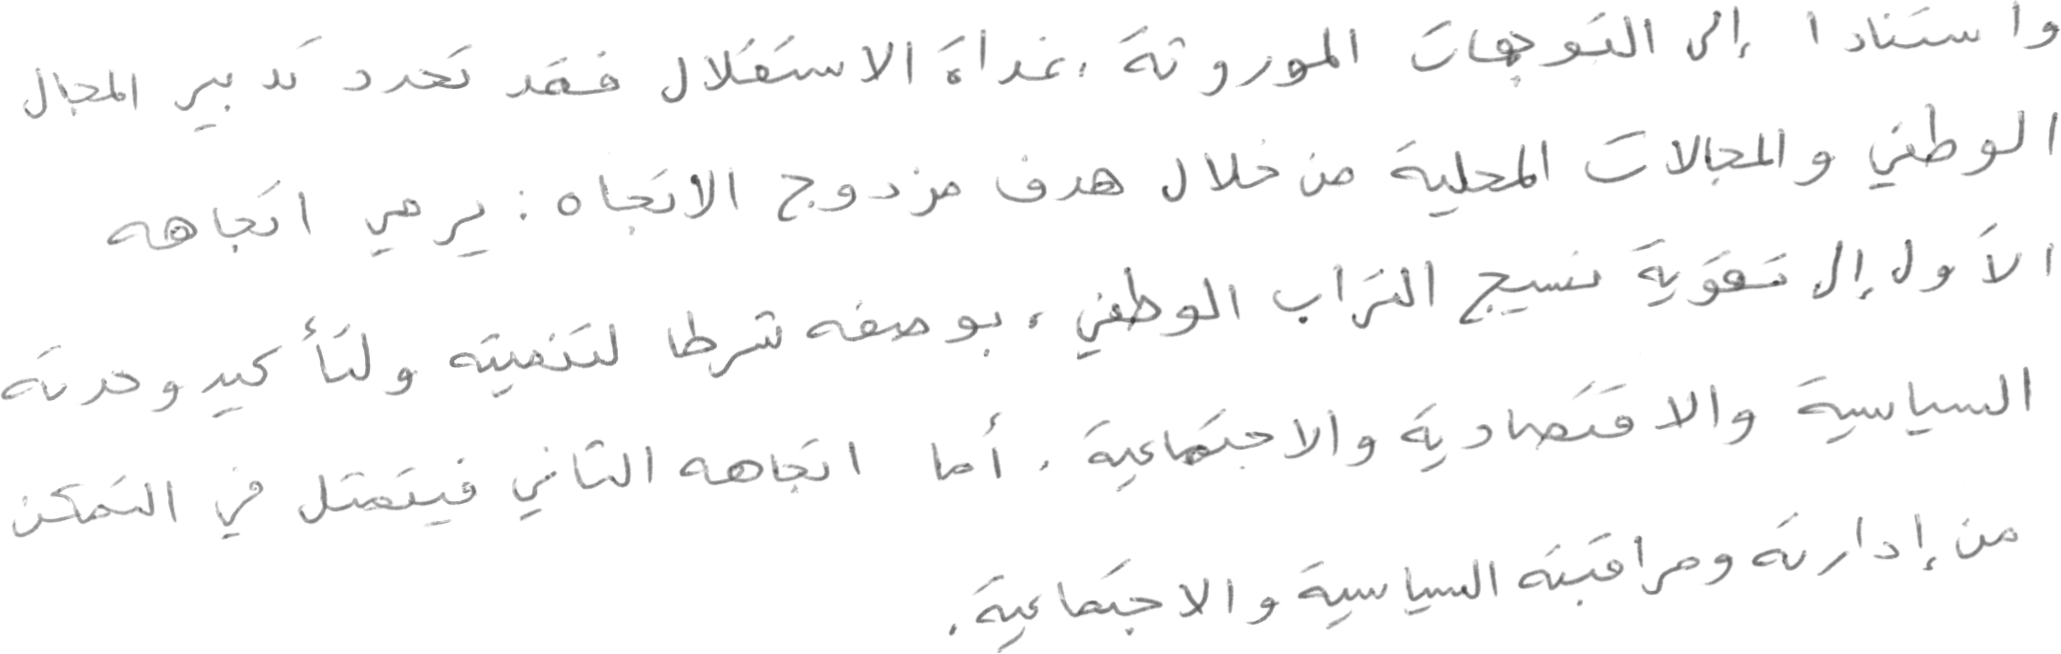 واستنادا إلى التوجهات الموروثة، غداة الاستقلال فقد تحدد تدبير المجال
الوطني والمجالات المحلية من خلال هدف مزدوج الاتجاه: يرمي اتجاهه
الأول إلى تقوية نسيج التراب الوطني، بوصفه شرطا لتنميته ولتأكيد وحدته
السياسية والاقتصادية والاجتماعية. أما اتجاهه الثاني فيتمثل في التمكن
من إدارته ومراقبته السياسية والاجتماعية.